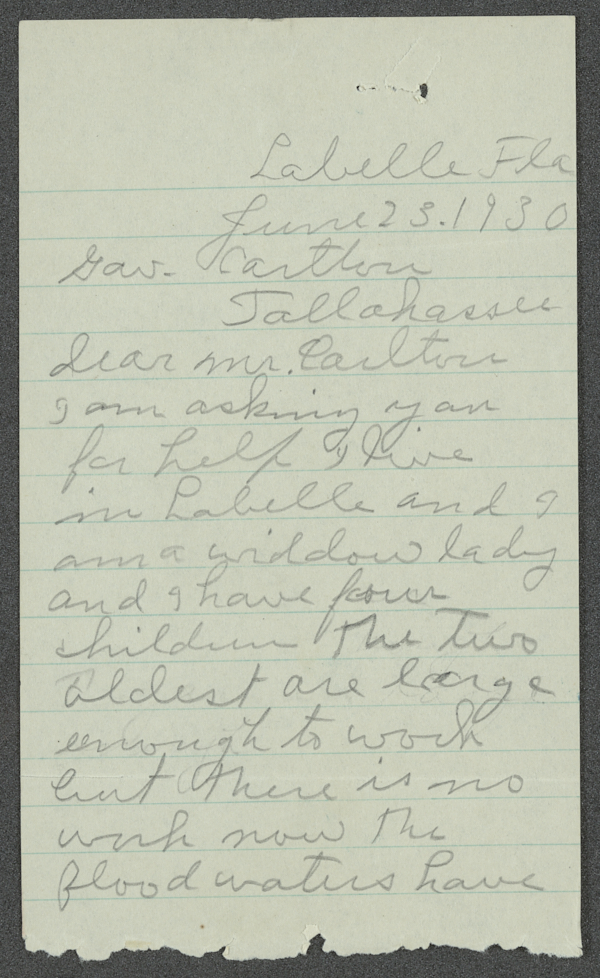 Labelle Fla
June 23. 1930
Gov. Carlton
Tallahassee
dear mr. Carlton
I am asking you
for help I live
in Labelle and I
am a widdow lady
and I have four
children the two
oldest are large
enough to work
but there is no
work now the
flood waters have